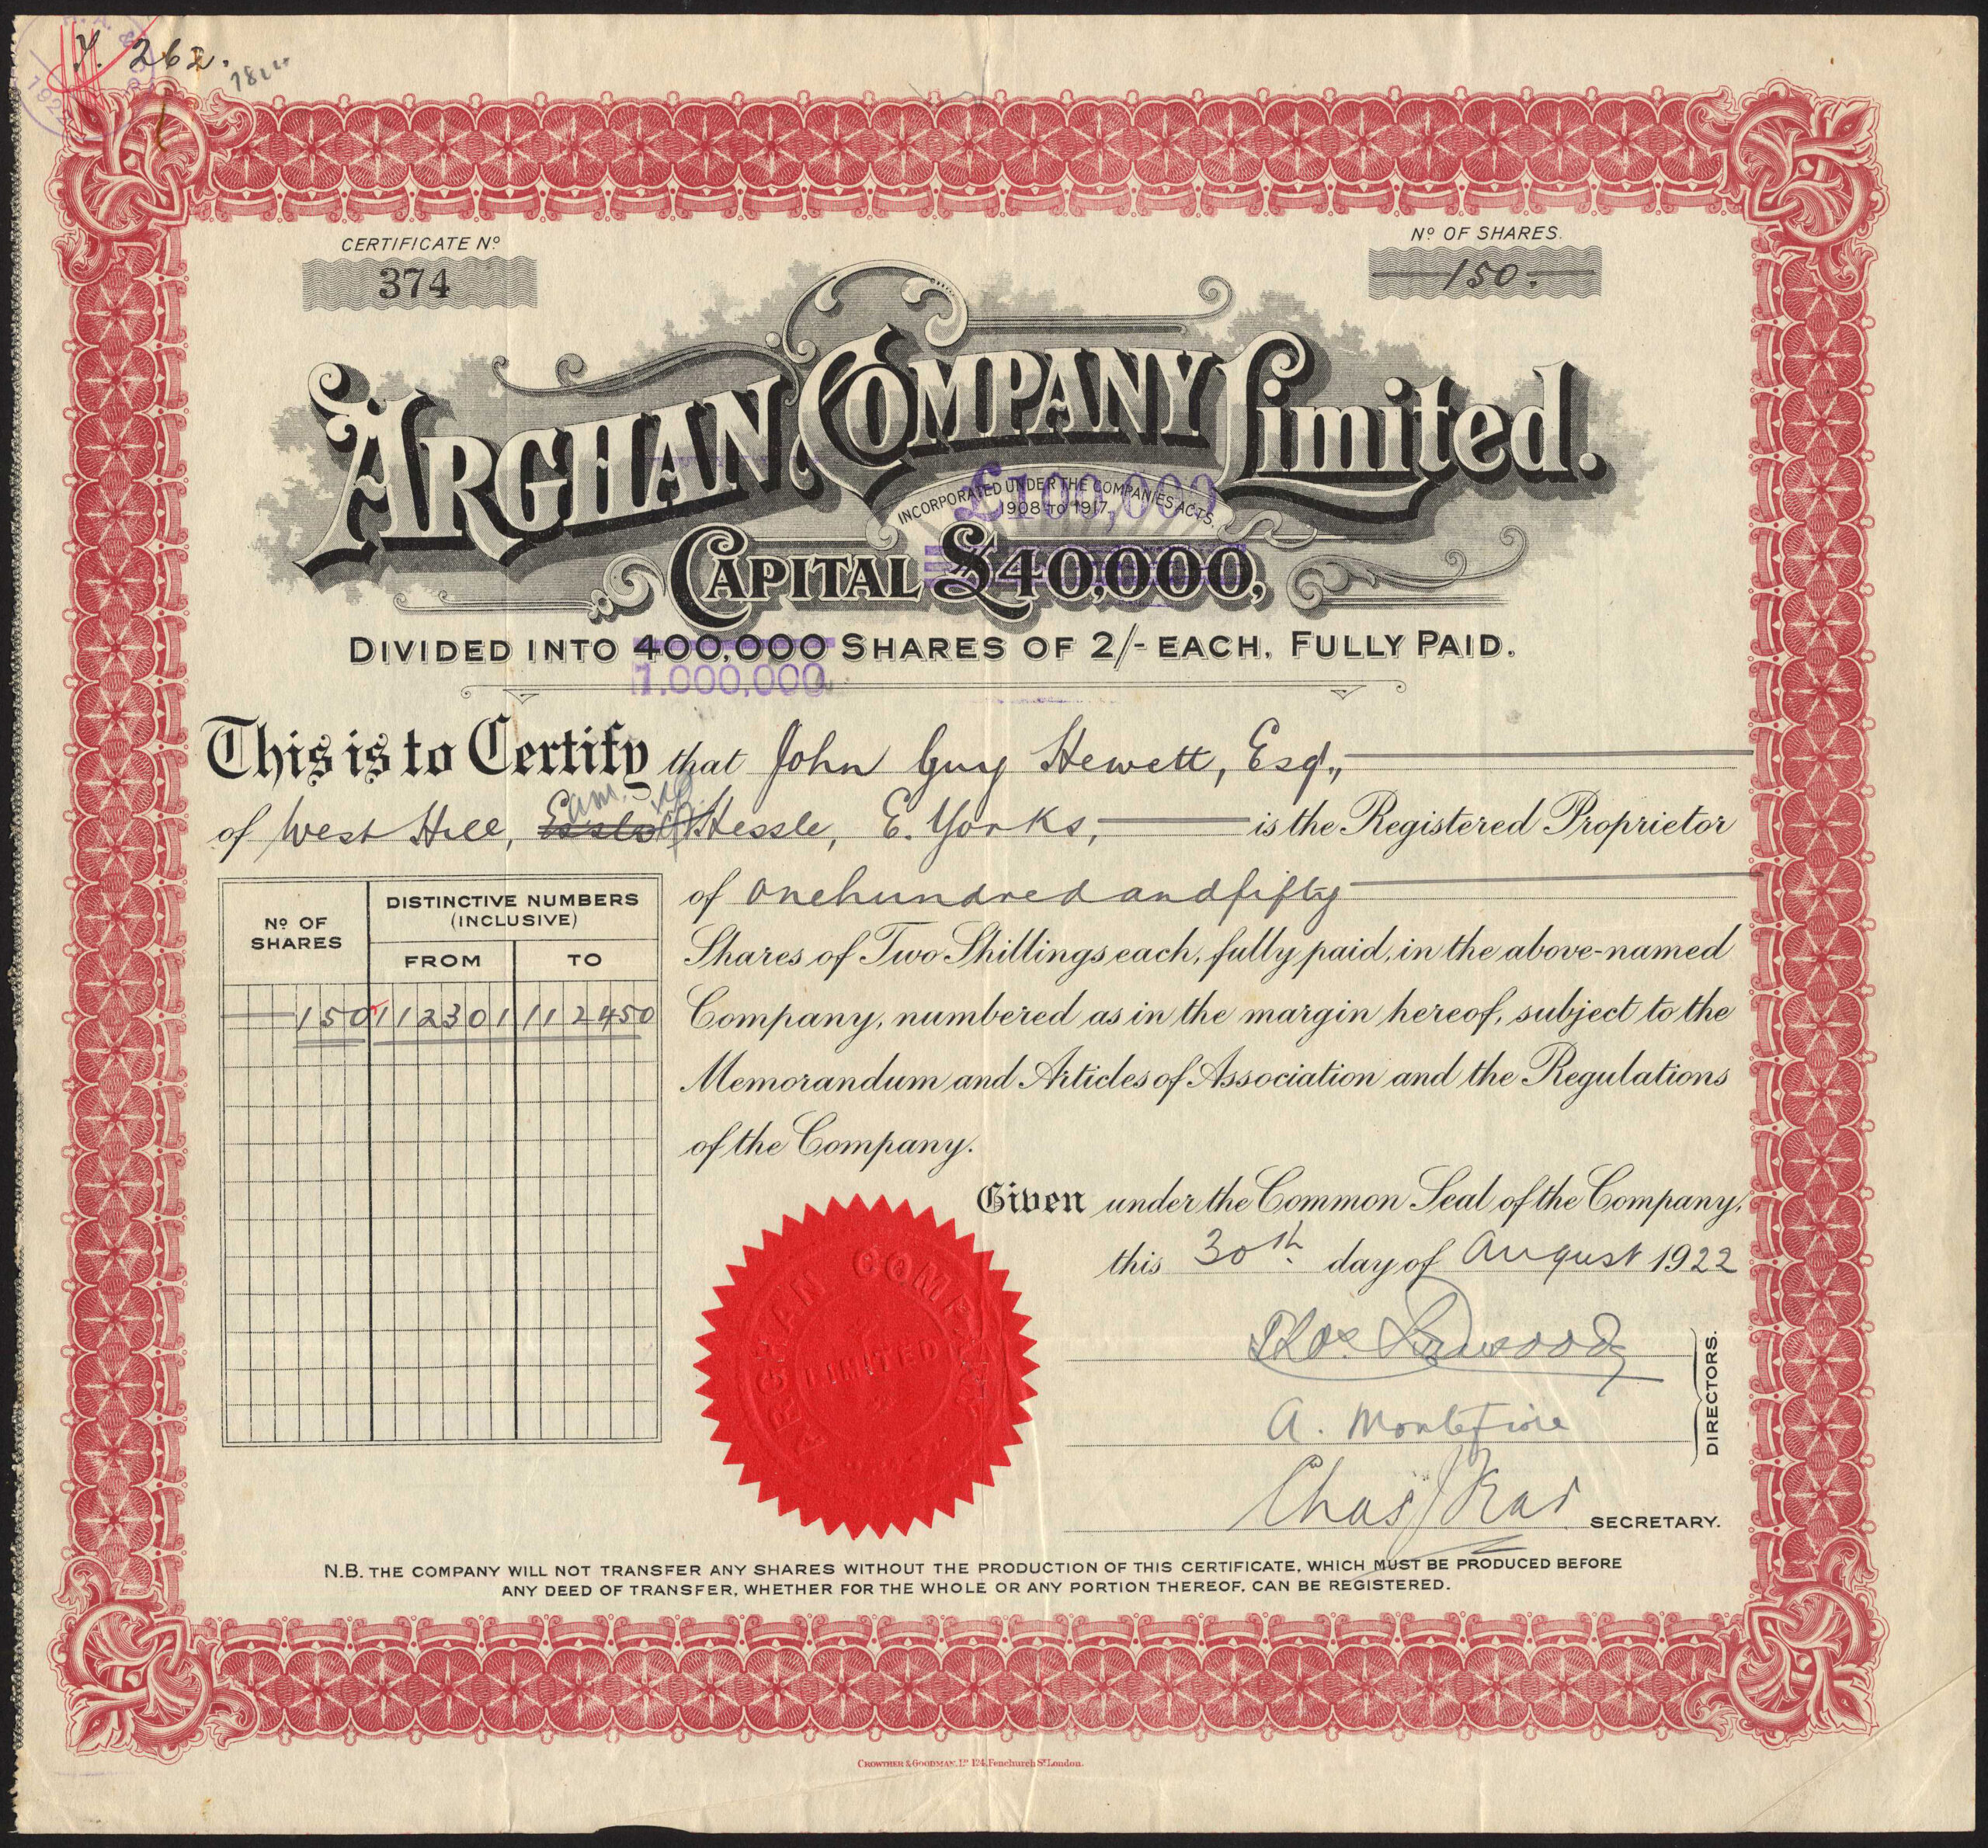 T. 262.
CERTIFICATE Nº
374
Nº OF SHARES.
150
ARGHAN COMPANY Limited.
INCORPORATED UNDER THE COMPANIES ACTS,
1908 TO 1917.
£100,000
CAPITAL £40,000,
DIVIDED INTO 400,000 SHARES OF 2/- EACH, FULLY PAID.
1.000,000
This is to Certify that John Guy Hewett, Esq.,
of West Hill, Hessle, E. Yorks, is the Registered Proprietor
of onehundredandfifty
Shares of Two Shillings each, fully paid, in the above-named
Company, numbered as in the margin hereof, subject to the
Memorandum and Articles of Association and the Regulations
of the Company.
Nº OF SHARES
DISTINCTIVE NUMBERS (INCLUSIVE)
FROM TO
150 112301 112450
Given under the Common Seal of the Company,
this 30th day of August 1922
ARGHAN COMPANY
LIMITED
A. Montefiore
DIRECTORS.
Chas
SECRETARY.
N.B. THE COMPANY WILL NOT TRANSFER ANY SHARES WITHOUT THE PRODUCTION OF THIS CERTIFICATE, WHICH MUST BE PRODUCED BEFORE
ANY DEED OF TRANSFER, WHETHER FOR THE WHOLE OR ANY PORTION THEREOF, CAN BE REGISTERED.
CROWTHER & GOODMAN, Lᵀᴰ 124, Fenchurch Sᵗ London.